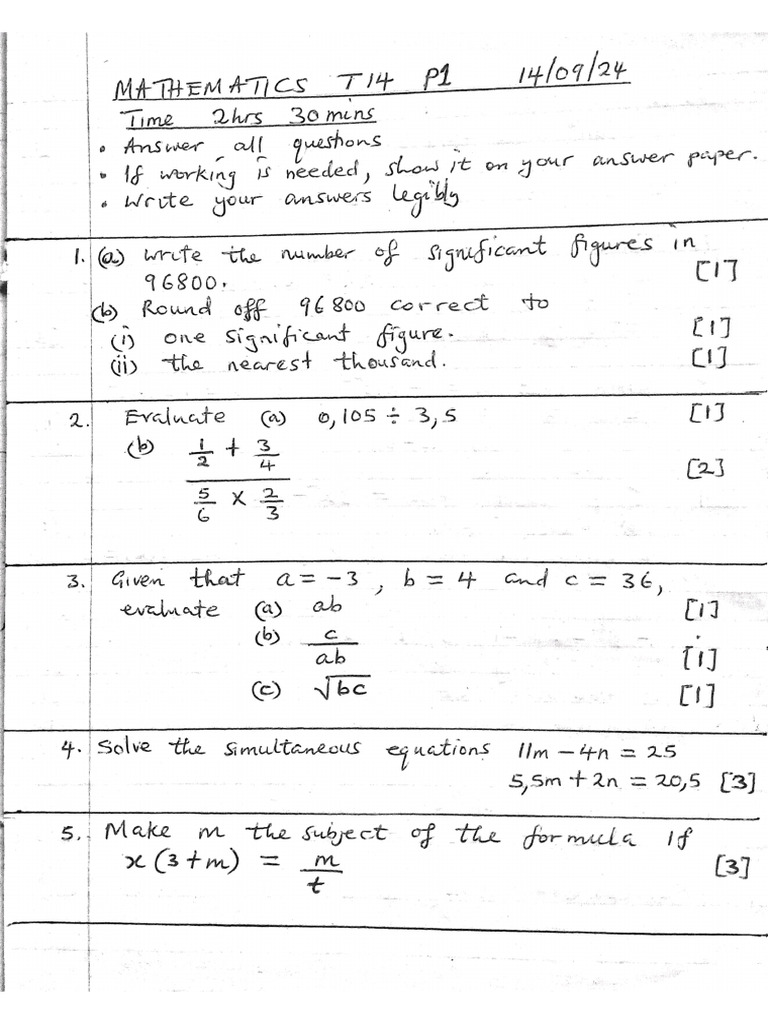 MATHEMATICS T14 P1 14/09/24
Time 2hrs 30mins
• Answer all questions
• If working is needed, show it on your answer paper.
• Write your answers legibly
1. (a) Write the number of significant figures in
96800. [1]
(b) Round off 96800 correct to
(i) one significant figure. [1]
(ii) the nearest thousand. [1]
2. Evaluate (a) 0,105 ÷ 3,5 [1]
(b) 1/2 + 3/4
5/6 × 2/3 [2]
3. Given that a = -3, b = 4 and c = 36,
evaluate (a) ab [1]
(b) c/ab [1]
(c) √bc [1]
4. Solve the simultaneous equations 11m - 4n = 25
5,5m + 2n = 20,5 [3]
5. Make m the subject of the formula if
x(3+m) = m/t [3]